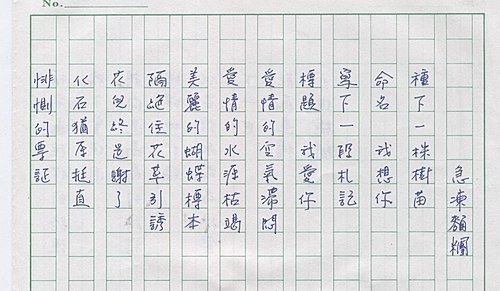 No.
急凍顏欄
種下一株樹苗
命名 我想你
寫下一頁札記
標題 我愛你
愛情的空氣滯悶
愛情的水源枯竭
美麗的蝴蝶標本
隔絕住花草引誘
花兒終是謝了
化石猶原挺直
悱惻的專証